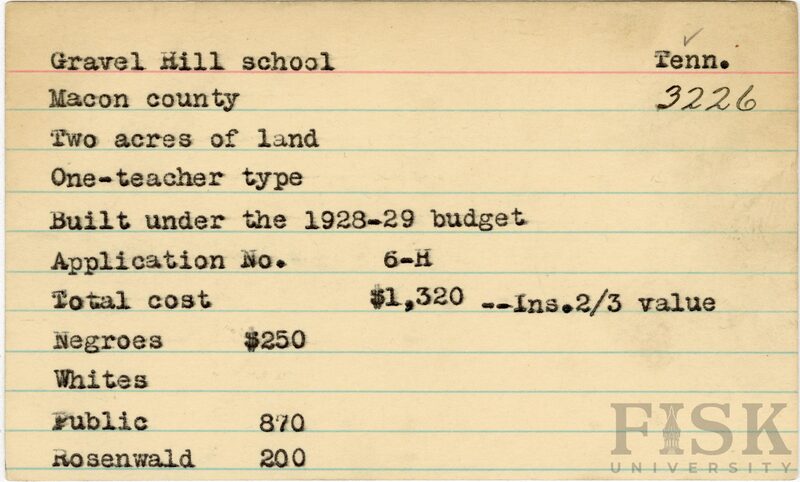 Gravel Hill school Tenn.
Macon county 3226
Two acres of land
One-teacher type
Built under the 1928-29 budget
Application No. 6-H
Total cost $1,320 --Ins.2/3 value
Negroes $250
Whites
Public 870
Rosenwald 200
FISK
UNIVERSITY